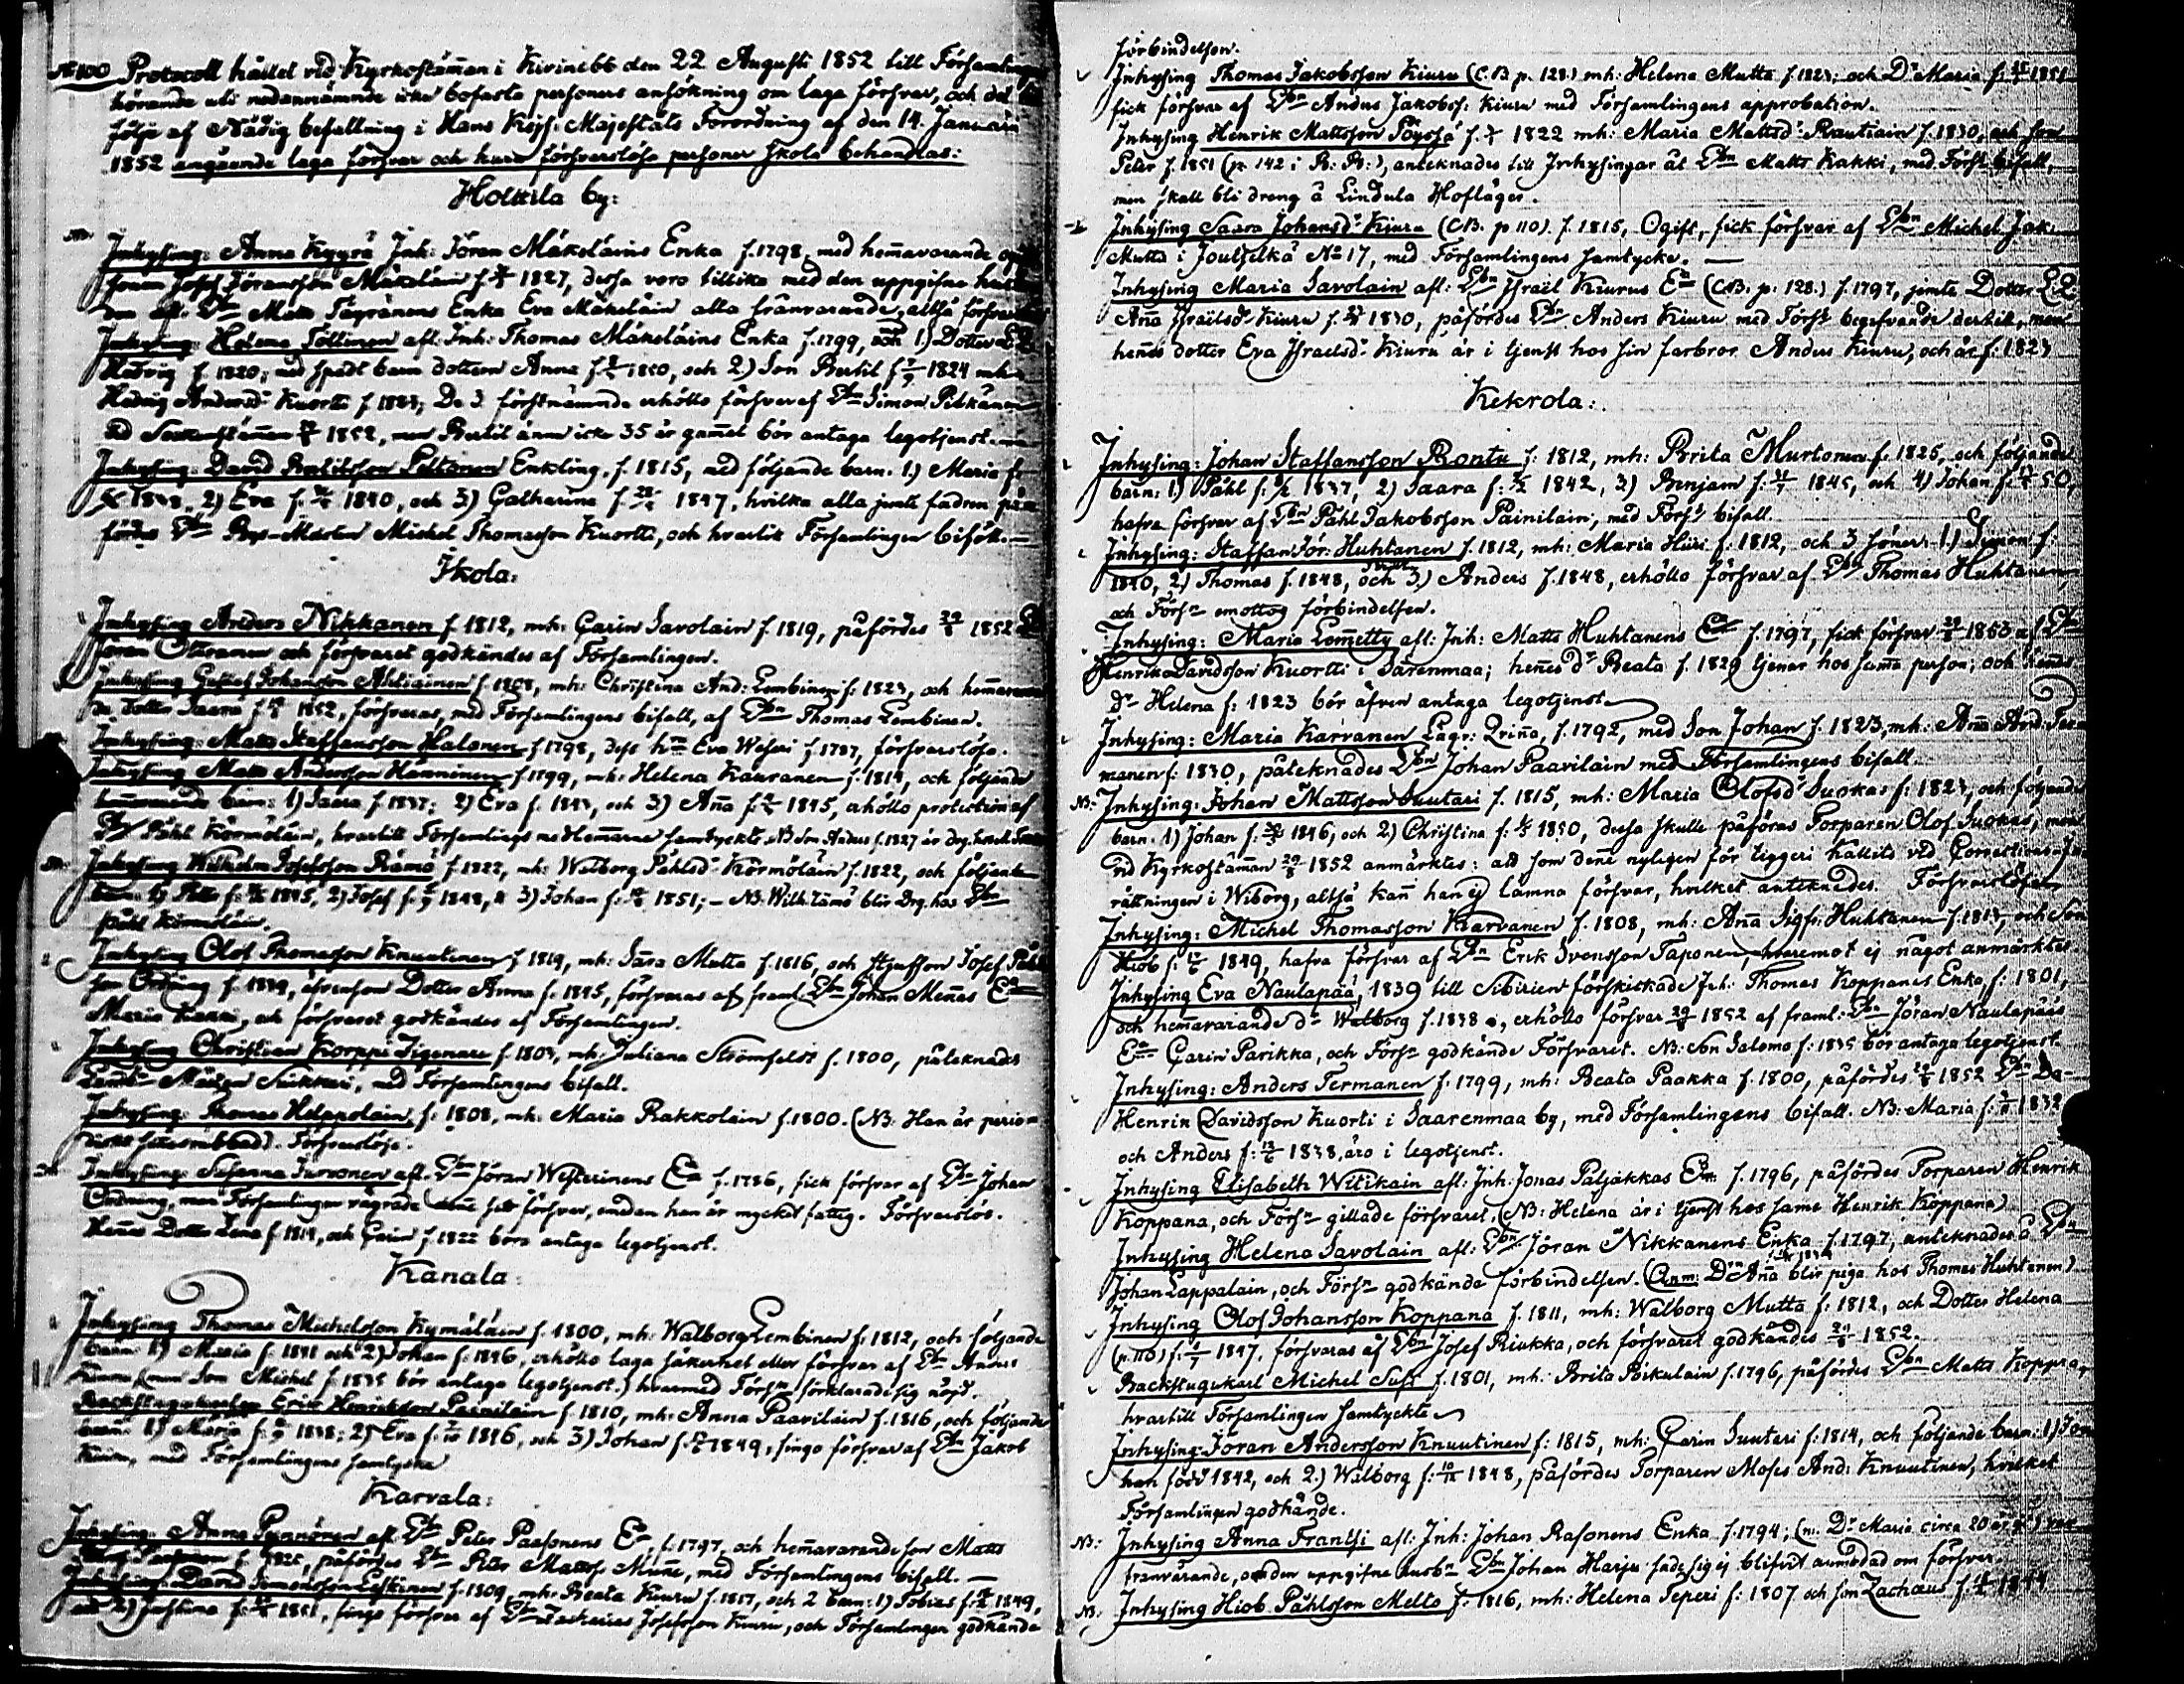 № 100 Protocoll hållet vid Kyrkostäm̄an i Kivinebb den 22 Augusti 1852 till Församlingens
hörande uti nedannämnde icke bofasta personers ansökning om laga försvar, och det till
följe af Nådig befallning i Hans Kejs: Majestäts Förordning af den 14. Januarii
1852 angående laga försvar och huru försvarslösa personer skola behandlas:
Hottila by:
Inhysing: Anna Kyyrä Inh: Jöran Mäkeläins Enka f. 1798, med hem̄avarande
sonen Josef Jöransson Mäkeläin f. 1827, dessa voro tillika med den uppgifne
afl: Matts Täyränens Enka Eva Mäkeläin alla frånvarande, altså
Inhysing: Helena Töllinen afl: Inh: Thomas Mäkeläins Enka f. 1799, och 1) Dotter
Hedvig f. 1820; med spädt barn dottern Anna f. 1850, och 2) Son Bertil f. 1824 mh:
Hedvig Andersd: Kuortti f. De 3 förstnämnde erhöllo försvar af Simon Pitkänen
vid Sockenstäm̄an 1852, men Bertil änm icke 35 år gam̄al bör antaga legotjenst.
Inhysing: David Bertilsson Peltonen Enkling. f. 1815, med följande barn. 1.) Maria f.
1838, 2) Eva f. 1840, och 3) Catharina f. 1847, hvilka alla jemte fadren
fördes Michel Thomasson Kuortti, och hvartill Församlingen biföll.—
Ikola:
Inhysing Anders Nikkanen f. 1812, mh: Carin Savolain f. 1819, påfördes 29/8 1852
Jöran och försvaret godkändes af Församlingen.
Inhysing Gustaf Johansson Ahtiainen f. 1808, mh: Christina And: Lembinen f: 1823, och
Dotter Saara f. 1852, försvaras, med Församlingens bifall, af Thomas Lembinen.
Inhysing: Matts Staffansson Halonen f. 1798, dess Eva Weseri f. 1787, försvarslösa.
Inhysing Matts Andersson Hänninen f. 1799, mh: Helena Kauranen f: 1814, och följande
hem̄avarande barn: 1) Saara f. 1837; 2) Eva f. 1843, och 3) An̄a f. 1845, erhöllo protection af
Påhl Körmöläin, hvartill Församlings samtyckte. NB Son Anders f. 1827 är drg.
Inhysing Wilhelm Josefsson Rämö f. 1822, mh: Walborg Påhlsd: Körmöläin f. 1822, och följande
barn: 1) f. 1845, 2) Josef f. 1848, & 3) Johan f: 1851;— NB: Wilh. Rämö blir Drg. hos
Påhl Körmöläin.
Inhysing Olof Thomasson Knuutinen f. 1814, mh: Sara Mutta f. 1816, och Stjufson Josef
son f. 1839, äfvensom Dotter Anna f. 1845, försvaras af framl: Johan Men̄as
Maria och försvaret godkändes af Församlingen.
Inhysing Christian Korppi Zigenare f. 1803, mh: Juliana Strömfeldt f. 1800, påteknades
Sulkkari, med Församlingens bifall.
Inhysing: Thomas Helppolain, f: 1808, mh: Maria Rakkolain f. 1800. (NB: Han är
Försvarslöse.
Inhysing: Susanna Jurvonen afl: Jöran Westerinens f. 1786, fick försvar af Johan
men Församlingen vägrade sitt försvar, emedan han är mycket fattig. Försvarslös.
Hen̄es Dotter Lena f. 1819, och Carin f. 1822 böra antaga legotjenst.
Kanala:
Inhysing Thomas Michelsson Kymäläin f. 1800, mh: Walborg Lembinen f: 1812, och följande
barn: 1) Maria f. 1841 och 2) Johan f: 1846, erhöllo laga säkerhet eller försvar af Anders
Kiuru (men Son Michel f. 1835 bör antaga legotjenst.) hvarmed Förs:n förklarade sig nöjd.
Backstugukarlen Erik Henriksson Painilain f. 1810, mh: Anna Paavilain f. 1816, och följande
barn: 1) Maria f. 1838; 2) Eva f. 1846, och 3) Johan f. 1849, fingo försvar af Jakob
Kiuru, med Församlingens samtycke
Karvala:
Inhysing: Anna Pynnönen afl: Peter Paasonens f. 1797, och hem̄avarande son Matts
f. 1825, påfördes Peter Mattss: Mun̄e, med Församlingens bifall.—
Inhysing: David Simonsson Leskinen f. 1809, mh: Beata Kiuru f. 1817, och 2 barn: 1) Tobias f: 1849,
och 2) Justina f: 1851, fingo försvar af Zacharias Josefsson Kiuru, och Församlingen godkände
förbindelsen.
Inhysing Thomas Jakobsson Kiuru (C.B. p. 128.) mh: Helena Mutta f. 1823; och D:r Maria f: 1851
fick försvar af Anders Jakobss: Kiuru med Församlingens approbation.
Inhysing Henrik Mattsson Pöyssä f. 1822 mh: Maria Mattsd: Rautiain f. 1830, och son
Peter f. 1851 (p. 142 i B: B:), anteknades till Inhysingar åt Matts Kakki, med Förs:s bifall,
men skall bli dreng å Lindula Hofläger.
Inhysing Saara Johansd: Kiuru (CB. p 110). f. 1815, Ogift, fick försvar af Michel Jak:
Mutta i Joutselkä № 17, med Församlingens samtycke.—
Inhysing Maria Savolain afl: Israel Kiurus (CB: p: 128.) f. 1797, jemte Dotter
An̄a Israelsd: Kiuru f. 1830, påfördes Anders Kiuru med Förs:s dertill, men
hen̄es dotter Eva Israelsd: Kiuru är i tjenst hos sin farbror Anders Kiuru, och är f: 1823
Kekrola:.
Inhysing: Johan Staffansson Rontu f: 1812, mh: Brita Murtonen f. 1825, och följande
barn: 1) Påhl f: 1837, 2) Saara f: 1842, 3) Benjam f: 1845, och 4) Johan f: 50,
hafva försvar af Påhl Jakobsson Painilain, med Förs:s bifall.
Inhysing: Staffan Jör: Huhtanen f. 1812, mh: Maria Hüri f: 1812, och 3 söner: 1.) Simon f:
1840, 2) Thomas f. 1848, och 3.) Anders f. 1848, erhöllo försvar af Thomas Huhtanen,
och Förs:n emottog förbindelsen.
Inhysing: Maria Lem̄etty afl: Inh: Matts Huhtanens f. 1797, fick försvar 29/8 1853 af
Henrik Davidsson Kuortti i Särenmaa; hen̄es d:r Beata f. 1829 tjenar hos samma person; och hen̄es
d:r Helena f: 1823 bör äfven antaga legotjenst.
Inhysing: Maria Karvanen Lägr: Qvin̄a, f. 1792, med Son Johan f. 1823, mh: An̄a And: Ter-
manen f: 1830, påteknades Johan Paavilain med Församlingens bifall.
NB: Inhysing: Johan Mattsson Suutari f. 1815, mh: Maria Olofsd: Suokas f: 1823, och följande
barn. 1) Johan f: 1846, och 2) Christina f: 1850, dessa skulle påföras Torparen Olof Suokas, men
vid Kyrkostäm̄an 29/8 1852 anmärktes: att som den̄e nyligen för liggeri hållits vid Corrections-In-
rättningen i Wiborg, altså kan̄ han ej lämna försvar, hvilket anteknades. Försvarslöse.
Inhysing: Michel Thomasson Karvanen f. 1808, mh: An̄a Sigfr: Huhtanen f. 1813, och Son
Hiob f: 1849, hafva försvar af Erik Svensson Taponen, hvaremot ej något anmärktes
Inhysing Eva Naulapää, 1839 till Sibirien förskickade Inh: Thomas Koppanes Enka f: 1801,
och hem̄avarande d:r Walborg f. 1838, erhöllo försvar 29/8 1852 af framl: Jöran Naulapääs
Carin Parikka, och Förs:n godkände Försvaret. NB: Son Salomo f: 1835 bör antaga legotjenst.
Inhysing: Anders Termanen f. 1799, mh: Beata Paakka f. 1800, påfördes 29/8 1852
Henrik Davidsson Kuortti i Saarenmaa by, med Församlingens bifall. NB: Maria f: 1832
och Anders f: 1838, äro i legotjenst.
Inhysing Elisabeth Witikain afl: Inh: Jonas Paljakkas f. 1796, påfördes Torparen Henrik
Koppana, och Förs:n gillade försvaret. (NB: Helena är i tjenst hos same Henrik Koppana)
Inhysing Helena Savolain afl: Jöran Nikkanens Enka f. 1797, anteknades å
Johan Lappalain, och Förs:n godkände förbindelsen. (Anm: D:r An̄a blir piga hos Thomas Huhtanen)
Inhysing Olof Johansson Koppana f. 1811, mh: Walborg Mutta f: 1812, och Dotter Helena
(p. 116) f: 1847, försvaras af Josef Riukka, och försvaret godkändes 29/8 1852.
Backstugukarl Michel Susi f. 1801, mh: Brita Pikulain f. 1796, påfördes Matts Koppra,
hvartill Församlingen samtyckte
Inhysing: Jöran Andersson Knuutinen f: 1815, mh: Carin Suutari f: 1814, och följande barn: 1) Jo-
han född 1842, och 2.) Walborg f: 1848, påfördes Torparen Moses And: Knuutinen, hvilket
Församlingen godkände.
NB: Inhysing Anna Frantsi afl: Inh: Johan Rasonens Enka f. 1794; (m: D:r Maria circa 20
frånvarande, och den uppgifne husb:n Johan Harju sade sig ej blifvit anmodad om försvar.
NB: Inhysing Hiob Påhlsson Melto f: 1816, mh: Helena Teperi f: 1807 och son Zachæus f: 1844